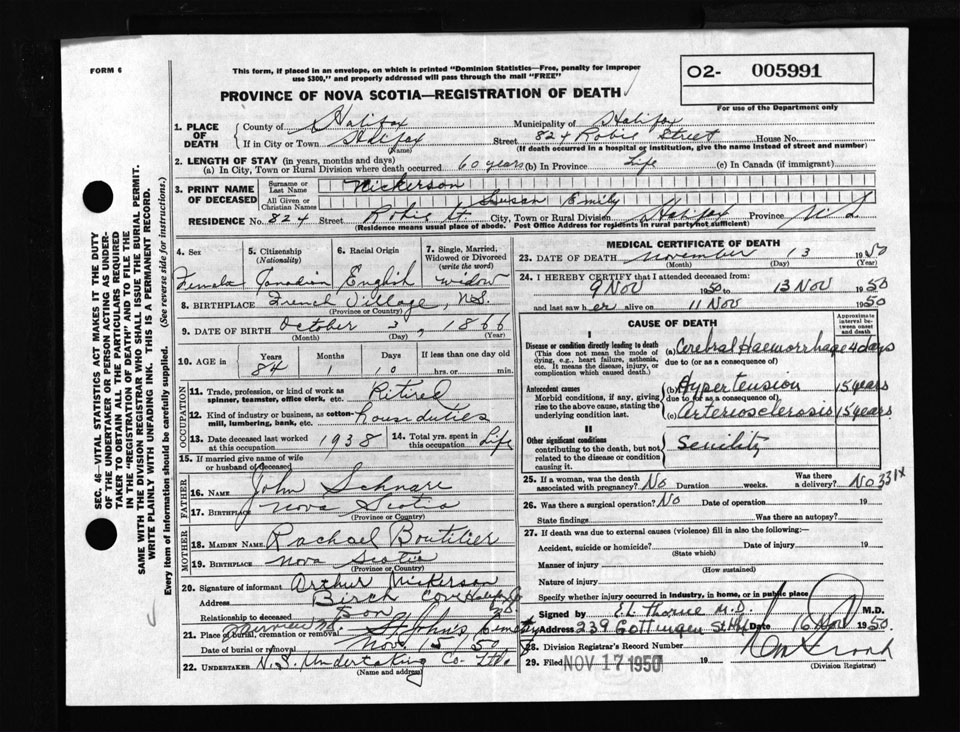 FORM 6
This form, if placed in an envelope, on which is printed "Dominion Statistics—Free, penalty for improper
use $300," and properly addressed will pass through the mail "FREE"
PROVINCE OF NOVA SCOTIA—REGISTRATION OF DEATH
02- 005991
For use of the Department only
1. PLACE OF DEATH
County of Halifax Municipality of Halifax
If in City or Town Halifax Street 824 Robie Street House No.
(Name) (If death occurred in a hospital or institution, give the name instead of street and number)
2. LENGTH OF STAY (in years, months and days)
(a) In City, Town or Rural Division where death occurred 60 years (b) In Province Life (c) In Canada (if immigrant)
3. PRINT NAME OF DECEASED
Surname or Last Name Nickerson
All Given or Christian Names Susan Emily
RESIDENCE No. 824 Street Robie St. City, Town or Rural Division Halifax Province N.S.
(Residence means usual place of abode. Post Office Address for residents in rural parts not sufficient)
4. Sex 5. Citizenship (Nationality) 6. Racial Origin 7. Single, Married, Widowed or Divorced (write the word)
Female Canadian English widow
8. BIRTHPLACE French Village, N.S.
(Province or Country)
9. DATE OF BIRTH October 3, 1866
(Month) (Day) (Year)
10. AGE in Years Months Days If less than one day old
84 1 10 hrs. or min.
OCCUPATION
11. Trade, profession, or kind of work as spinner, teamster, office clerk, etc. Retired
12. Kind of industry or business, as cotton-mill, lumbering, bank, etc. house duties
13. Date deceased last worked at this occupation 1938 14. Total yrs. spent in this occupation Life
15. If married give name of wife or husband of deceased
FATHER
16. NAME John Schnare
17. BIRTHPLACE Nova Scotia
(Province or Country)
MOTHER
18. MAIDEN NAME Rachael Boutilier
19. BIRTHPLACE Nova Scotia
(Province or Country)
20. Signature of informant Arthur Nickerson
Address Birch Cove Halifax Co
Relationship to deceased Son
21. Place of burial, cremation or removal Fairview N.S. St John's Cemetery
Date of burial or removal Nov. 15 50
22. UNDERTAKER N.S. Undertaking Co Ltd
(Name and address)
MEDICAL CERTIFICATE OF DEATH
23. DATE OF DEATH November 13 1950
(Month) (Day) (Year)
24. I HEREBY CERTIFY that I attended deceased from
9 Nov 1950 to 13 Nov 1950
and last saw her alive on 11 Nov 1950
CAUSE OF DEATH
Approximate interval between onset and death
I
Disease or condition directly leading to death (a) Cerebral Haemorrhage 4 days
(This does not mean the mode of dying, e.g., heart failure, asthenia, etc. It means the disease, injury, or complication which caused death.)
due to (or as a consequence of)
Antecedent causes (b) Hypertension 15 years
Morbid conditions, if any, giving rise to the above cause, stating the underlying condition last.
due to (or as a consequence of)
(c) Arteriosclerosis 15 years
II
Other significant conditions contributing to the death, but not related to the disease or condition causing it. Senility
25. If a woman, was the death associated with pregnancy? No Duration weeks. Was there a delivery? No 331X
26. Was there a surgical operation? No Date of operation 19
State findings Was there an autopsy?
27. If death was due to external causes (violence) fill in also the following:—
Accident, suicide or homicide? Date of injury 19
(State which)
Manner of injury
(How sustained)
Nature of injury
Specify whether injury occurred in industry, in home, or in public place
Signed by E.L. Thorne M.D. M.D.
Address 239 Gottingen St Hfx Date 16 Nov 1950.
28. Division Registrar's Record Number
29. Filed NOV 17 1950 19
(Division Registrar)
SEC. 46—VITAL STATISTICS ACT MAKES IT THE DUTY
OF THE UNDERTAKER OR PERSON ACTING AS UNDER-
TAKER TO OBTAIN ALL THE PARTICULARS REQUIRED
IN THE "REGISTRATION OF DEATH" AND TO FILE THE
SAME WITH THE DIVISION REGISTRAR WHO SHALL ISSUE THE BURIAL PERMIT.
WRITE PLAINLY WITH UNFADING INK. THIS IS A PERMANENT RECORD.
Every item of information should be carefully supplied. (See reverse side for instructions.)